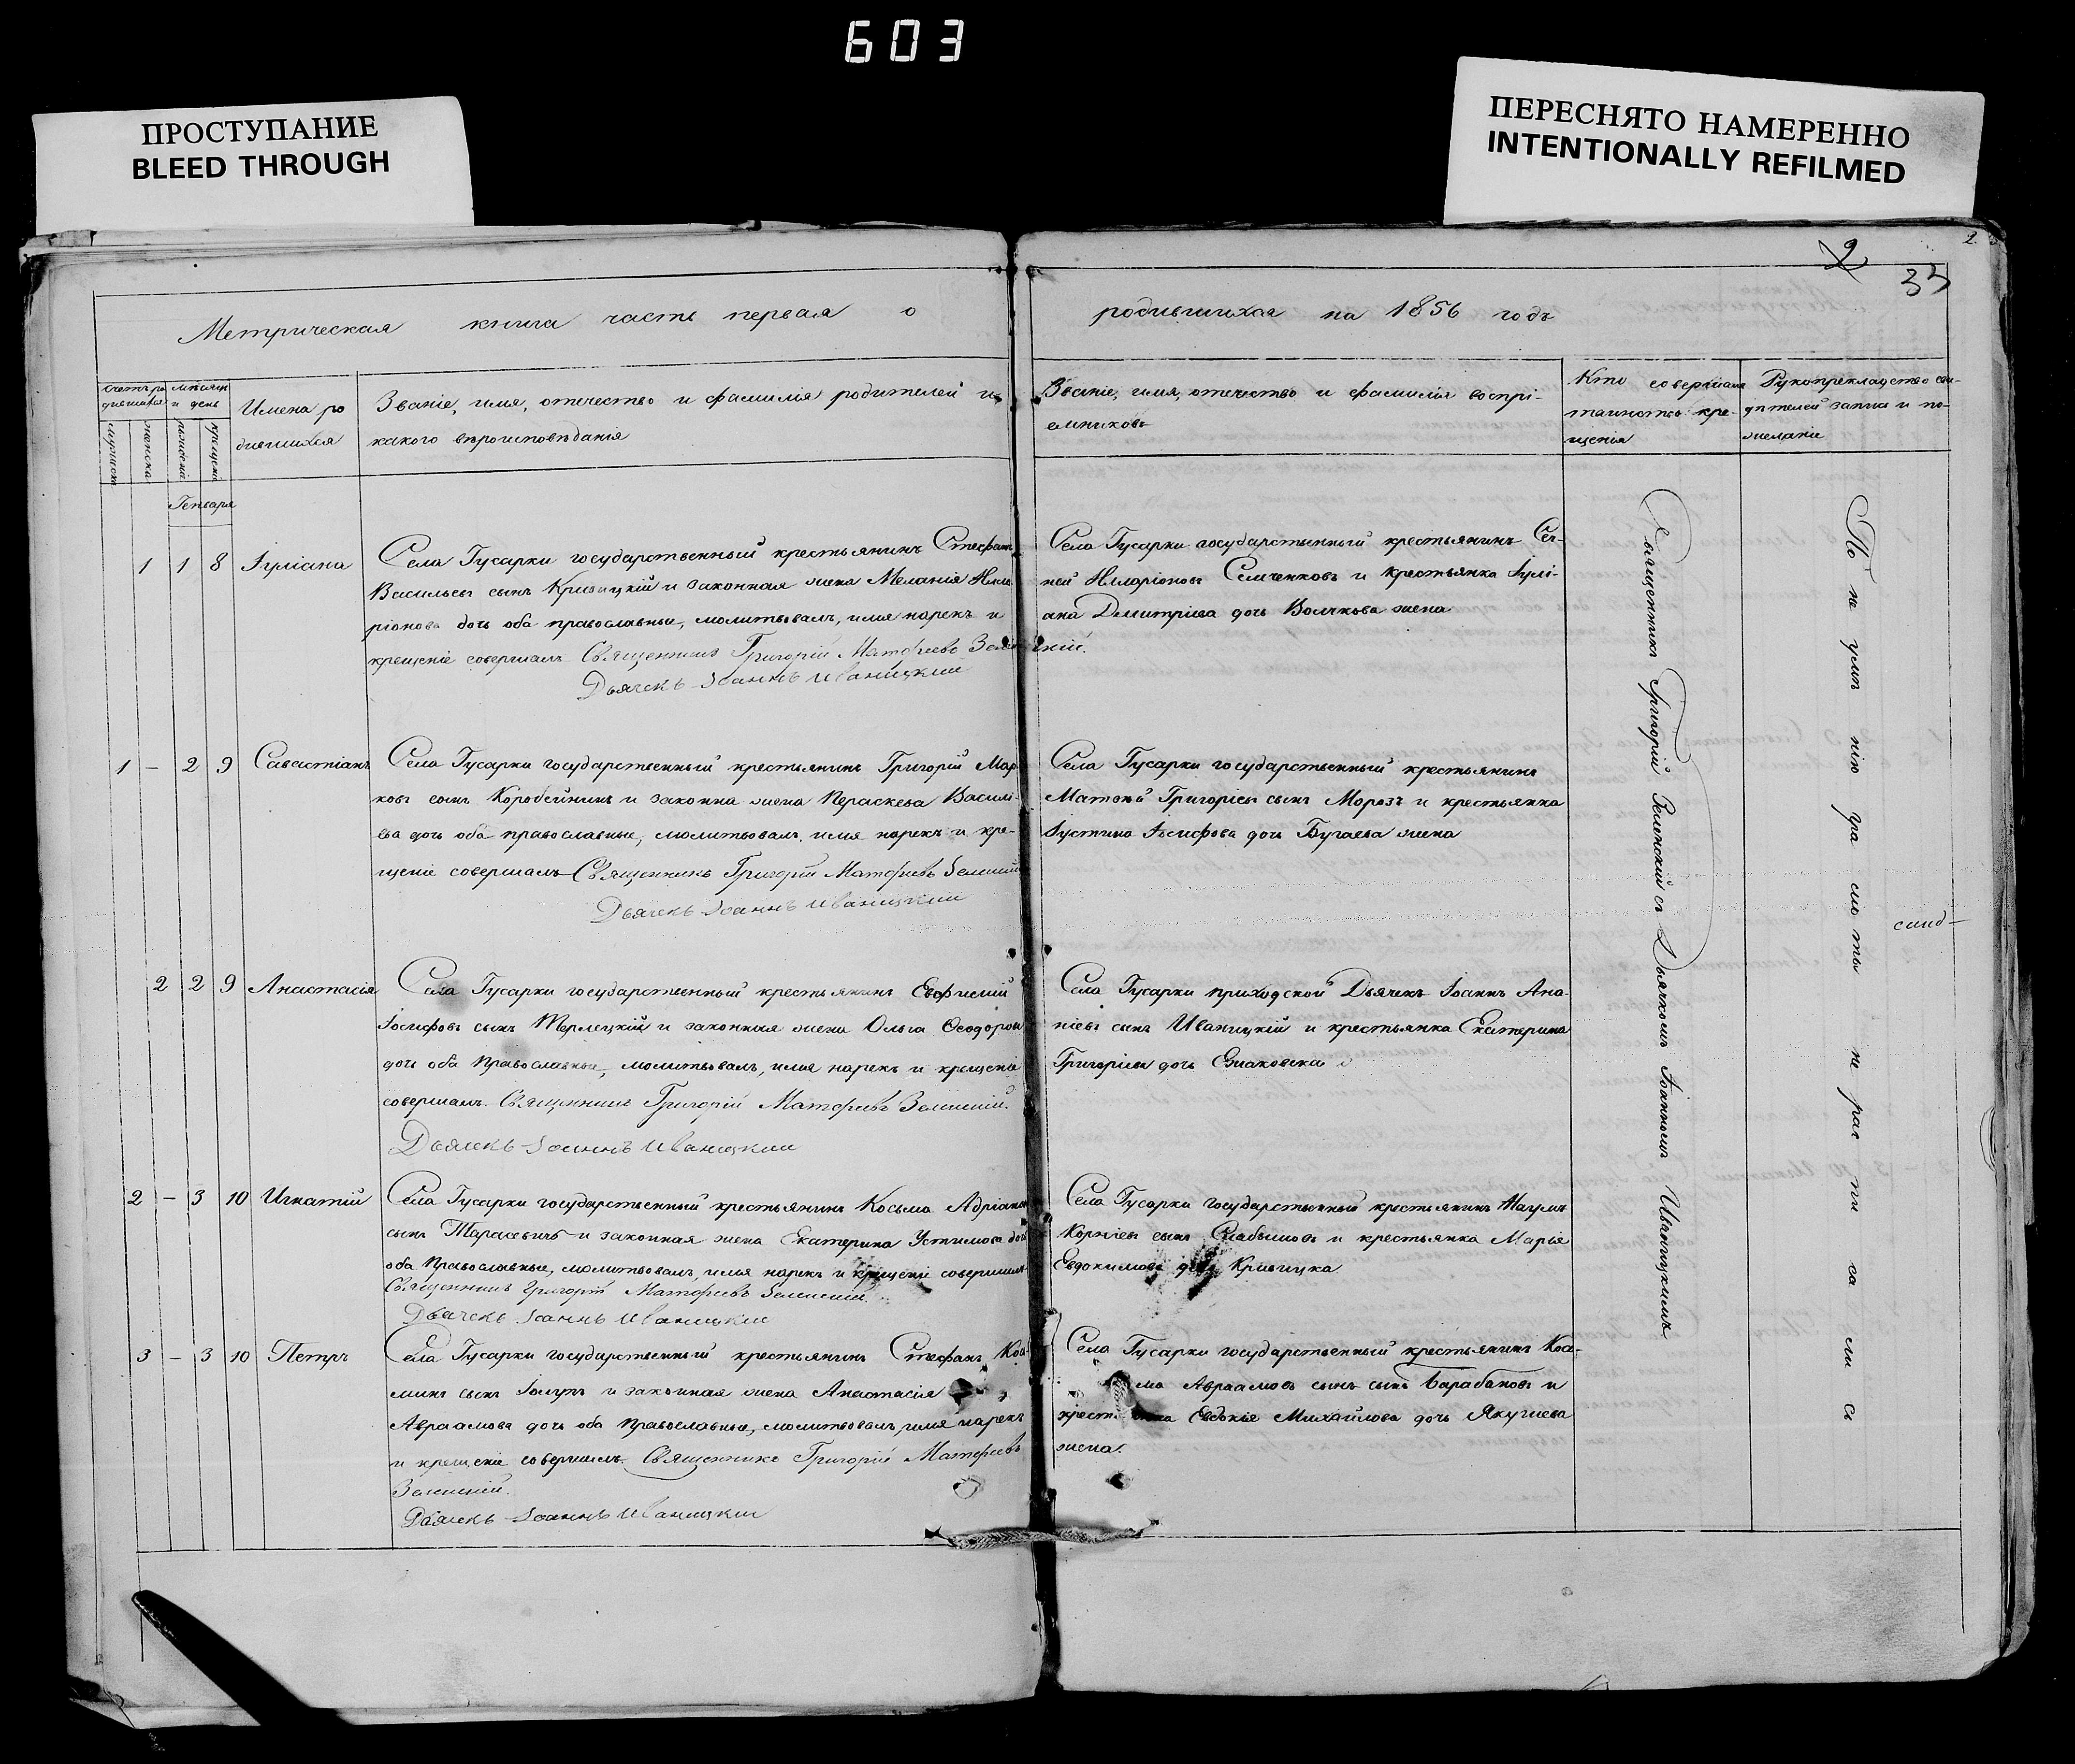 603
ПРОСТУПАНИЕ
BLEED THROUGH
ПЕРЕСНЯТО НАМЕРЕННО
INTENTIONALLY REFILMED
2
2
33
Метрическая книга часть первая о родившихся на 1856 годъ
Имена ро
дившихся
Званіе, имя, отечество и фамилія родителей и
какого вѣроисповѣданія
Званіе, имя, отечество и фамилія воспрі-
емниковъ
Кто совершалъ
таинство кре-
щенія
Рукоприкладство сви-
дѣтелей записи и по-
желанію
Генваря
1 1 8 Іуліана
Села Гусарки государственный крестьянинъ Стефанъ
Васильевъ сынъ Кривицкій и законная жена Меланія Илла-
ріонова дочь оба православные, молитвовалъ, имя нарекъ и
крещеніе совершалъ Священникъ Григорій Матфіевъ Зелинскій.
Дьячекъ Іоаннъ Иваницкій
Села Гусарки государственный крестьянинъ Сер-
гей Илларіоновъ Семченковъ и крестьянка Іулі-
ана Димитріева дочь Волчкова жена
1 – 2 9 Савастіанъ
Села Гусарки государственный крестьянинъ Григорій Мар-
ковъ сынъ Коробейникъ и законна жена Пераскева Василі-
ева дочь оба православные, молитвовалъ, имя нарекъ и кре-
щеніе совершалъ Священникъ Григорій Матфіевъ Зелинскій
Дьячекъ Іоаннъ Иваницкій
Села Гусарки государственный крестьянинъ
Матвѣй Григоріевъ сынъ Морозъ и крестьянка
Іустина Іосифова дочь Бугаева жена
2 2 9 Анастасія
Села Гусарки государственный крестьянинъ Евфимій
Іосифовъ сынъ Терлецкій и законная жена Ольга Ѳеодорова
дочь оба Православные, молитвовалъ, имя нарекъ и крещеніе
совершалъ Священникъ Григорій Матфіевъ Зелинскій.
Дьячекъ Іоаннъ Иваницкій
Села Гусарки приходской Дьячекъ Іоаннъ Ана-
ніевъ сынъ Иваницкій и крестьянка Екатерина
Григоріева дочь
2 – 3 10 Игнатій
Села Гусарки государственный крестьянинъ Косьма Адріановъ
сынъ Тарасевичъ и законная жена Екатерина Устимова дочь
оба Православные, молитвовалъ, имя нарекъ и крещеніе совершалъ
Священникъ Григорій Матфіевъ Зелинскій.
Дьячекъ Іоаннъ Иваницкій
Села Гусарки государственный крестьянинъ Наумъ
Корніевъ сынъ и крестьянка Марья
Евдокимова дочь Кривицка
3 – 3 10 Петръ
Села Гусарки государственный крестьянинъ Стефанъ Кось-
минъ сынъ и законная жена Анастасія
Авраамова дочь оба Православные, молитвовалъ, имя нарекъ
и крещеніе совершалъ Священникъ Григорій Матфіевъ
Зелинскій.
Дьячекъ Іоаннъ Иваницкій
Села Гусарки государственный крестьянинъ Кось-
ма Авраамовъ сынъ сынъ Барабановъ и
Евдокія Михайлова дочь Якушева
жена.
Священникъ Григорій Зелинский съ Дьячкомъ Іоанномъ Иваницкимъ
По не умѣ нію гра мо ты не рас пи са ли сь